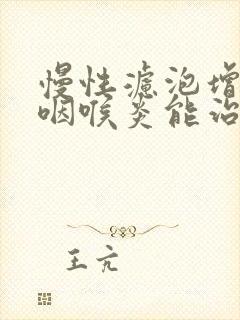 慢性濾泡增
咽喉炎能治
王亢